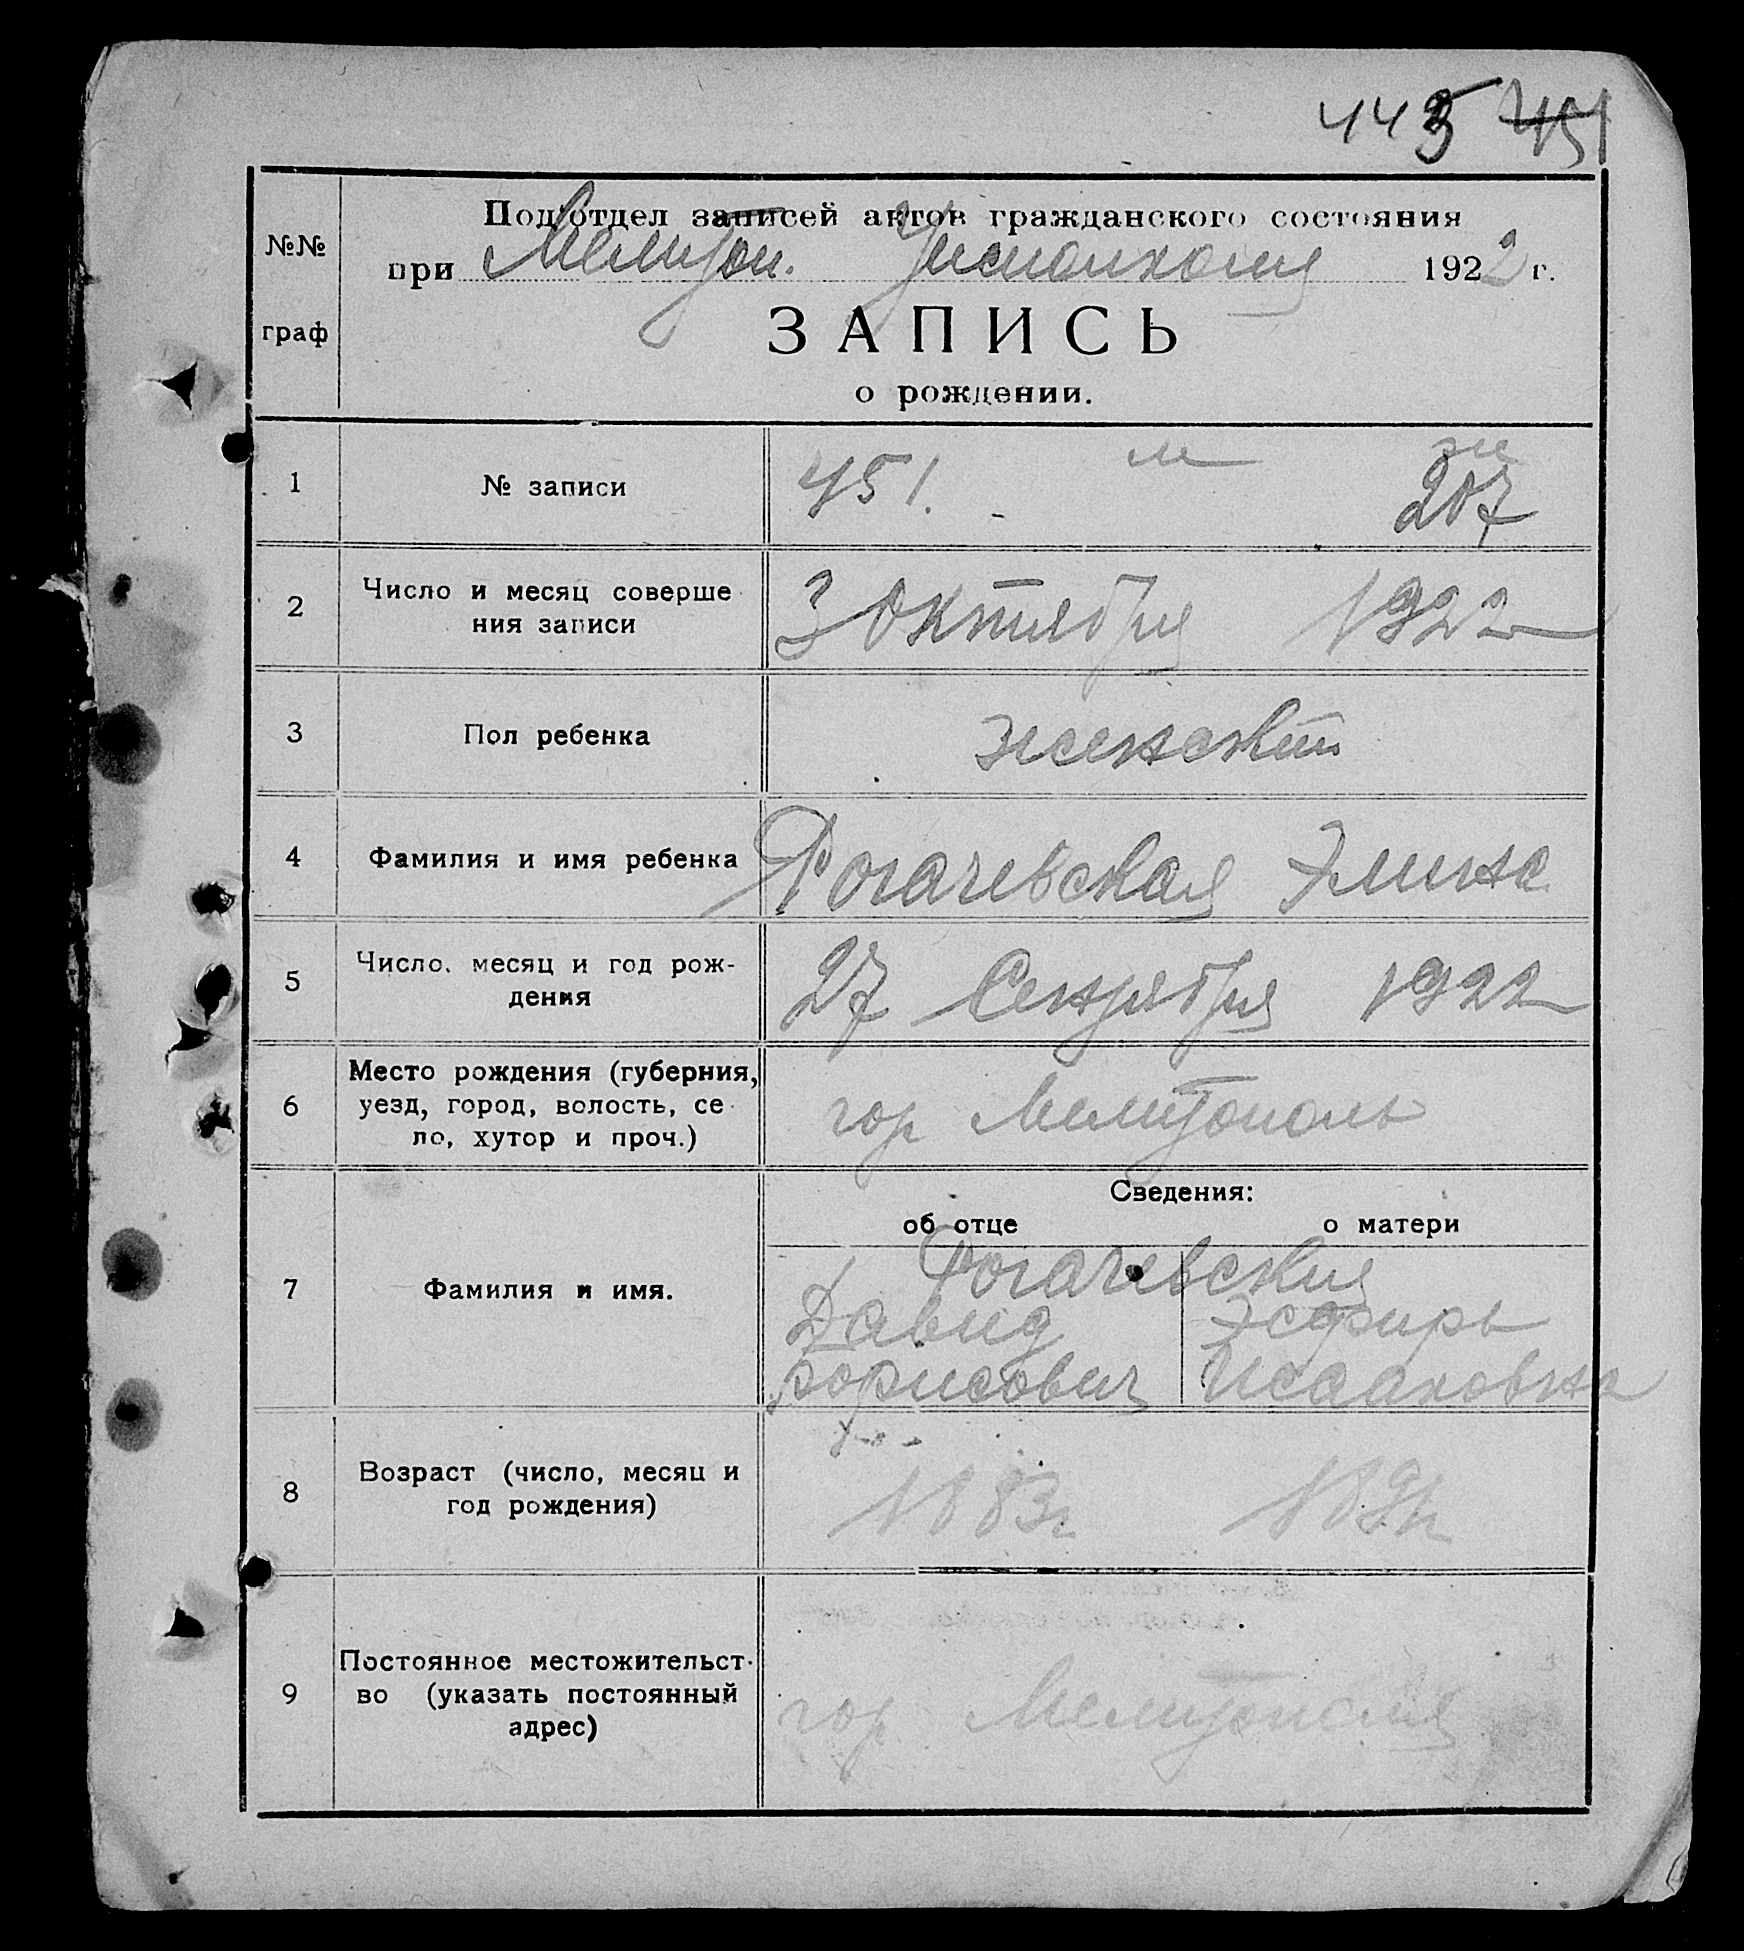 443 451
№№
граф
Подотдел записей актов гражданского состояния
при Мелитоп. Уисполкома 1922 г.
ЗАПИСЬ
о рождении.
1 № записи 451. м ж
207
2 Число и месяц соверше
ния записи 3 Октября 1922
3 Пол ребенка женский
4 Фамилия и имя ребенка Рогачевская Элина
5 Число, месяц и год рож-
дения 27 Сентября 1922
6 Место рождения (губерния,
уезд, город, волость, се
ло, хутор и проч.) гор Мелитополь
Сведения:
об отце о матери
7 Фамилия и имя. Рогачевские
Давид Эсфирь
Борисович Исааковна
8 Возраст (число, месяц и
год рождения) 1883г
9 Постоянное местожительст-
во (указать постоянный
адрес) гор Мелитополь